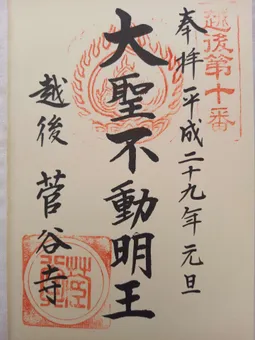 越後第十番
奉拝 平成二十九年 元旦
大聖不動明王
越後 菅谷寺